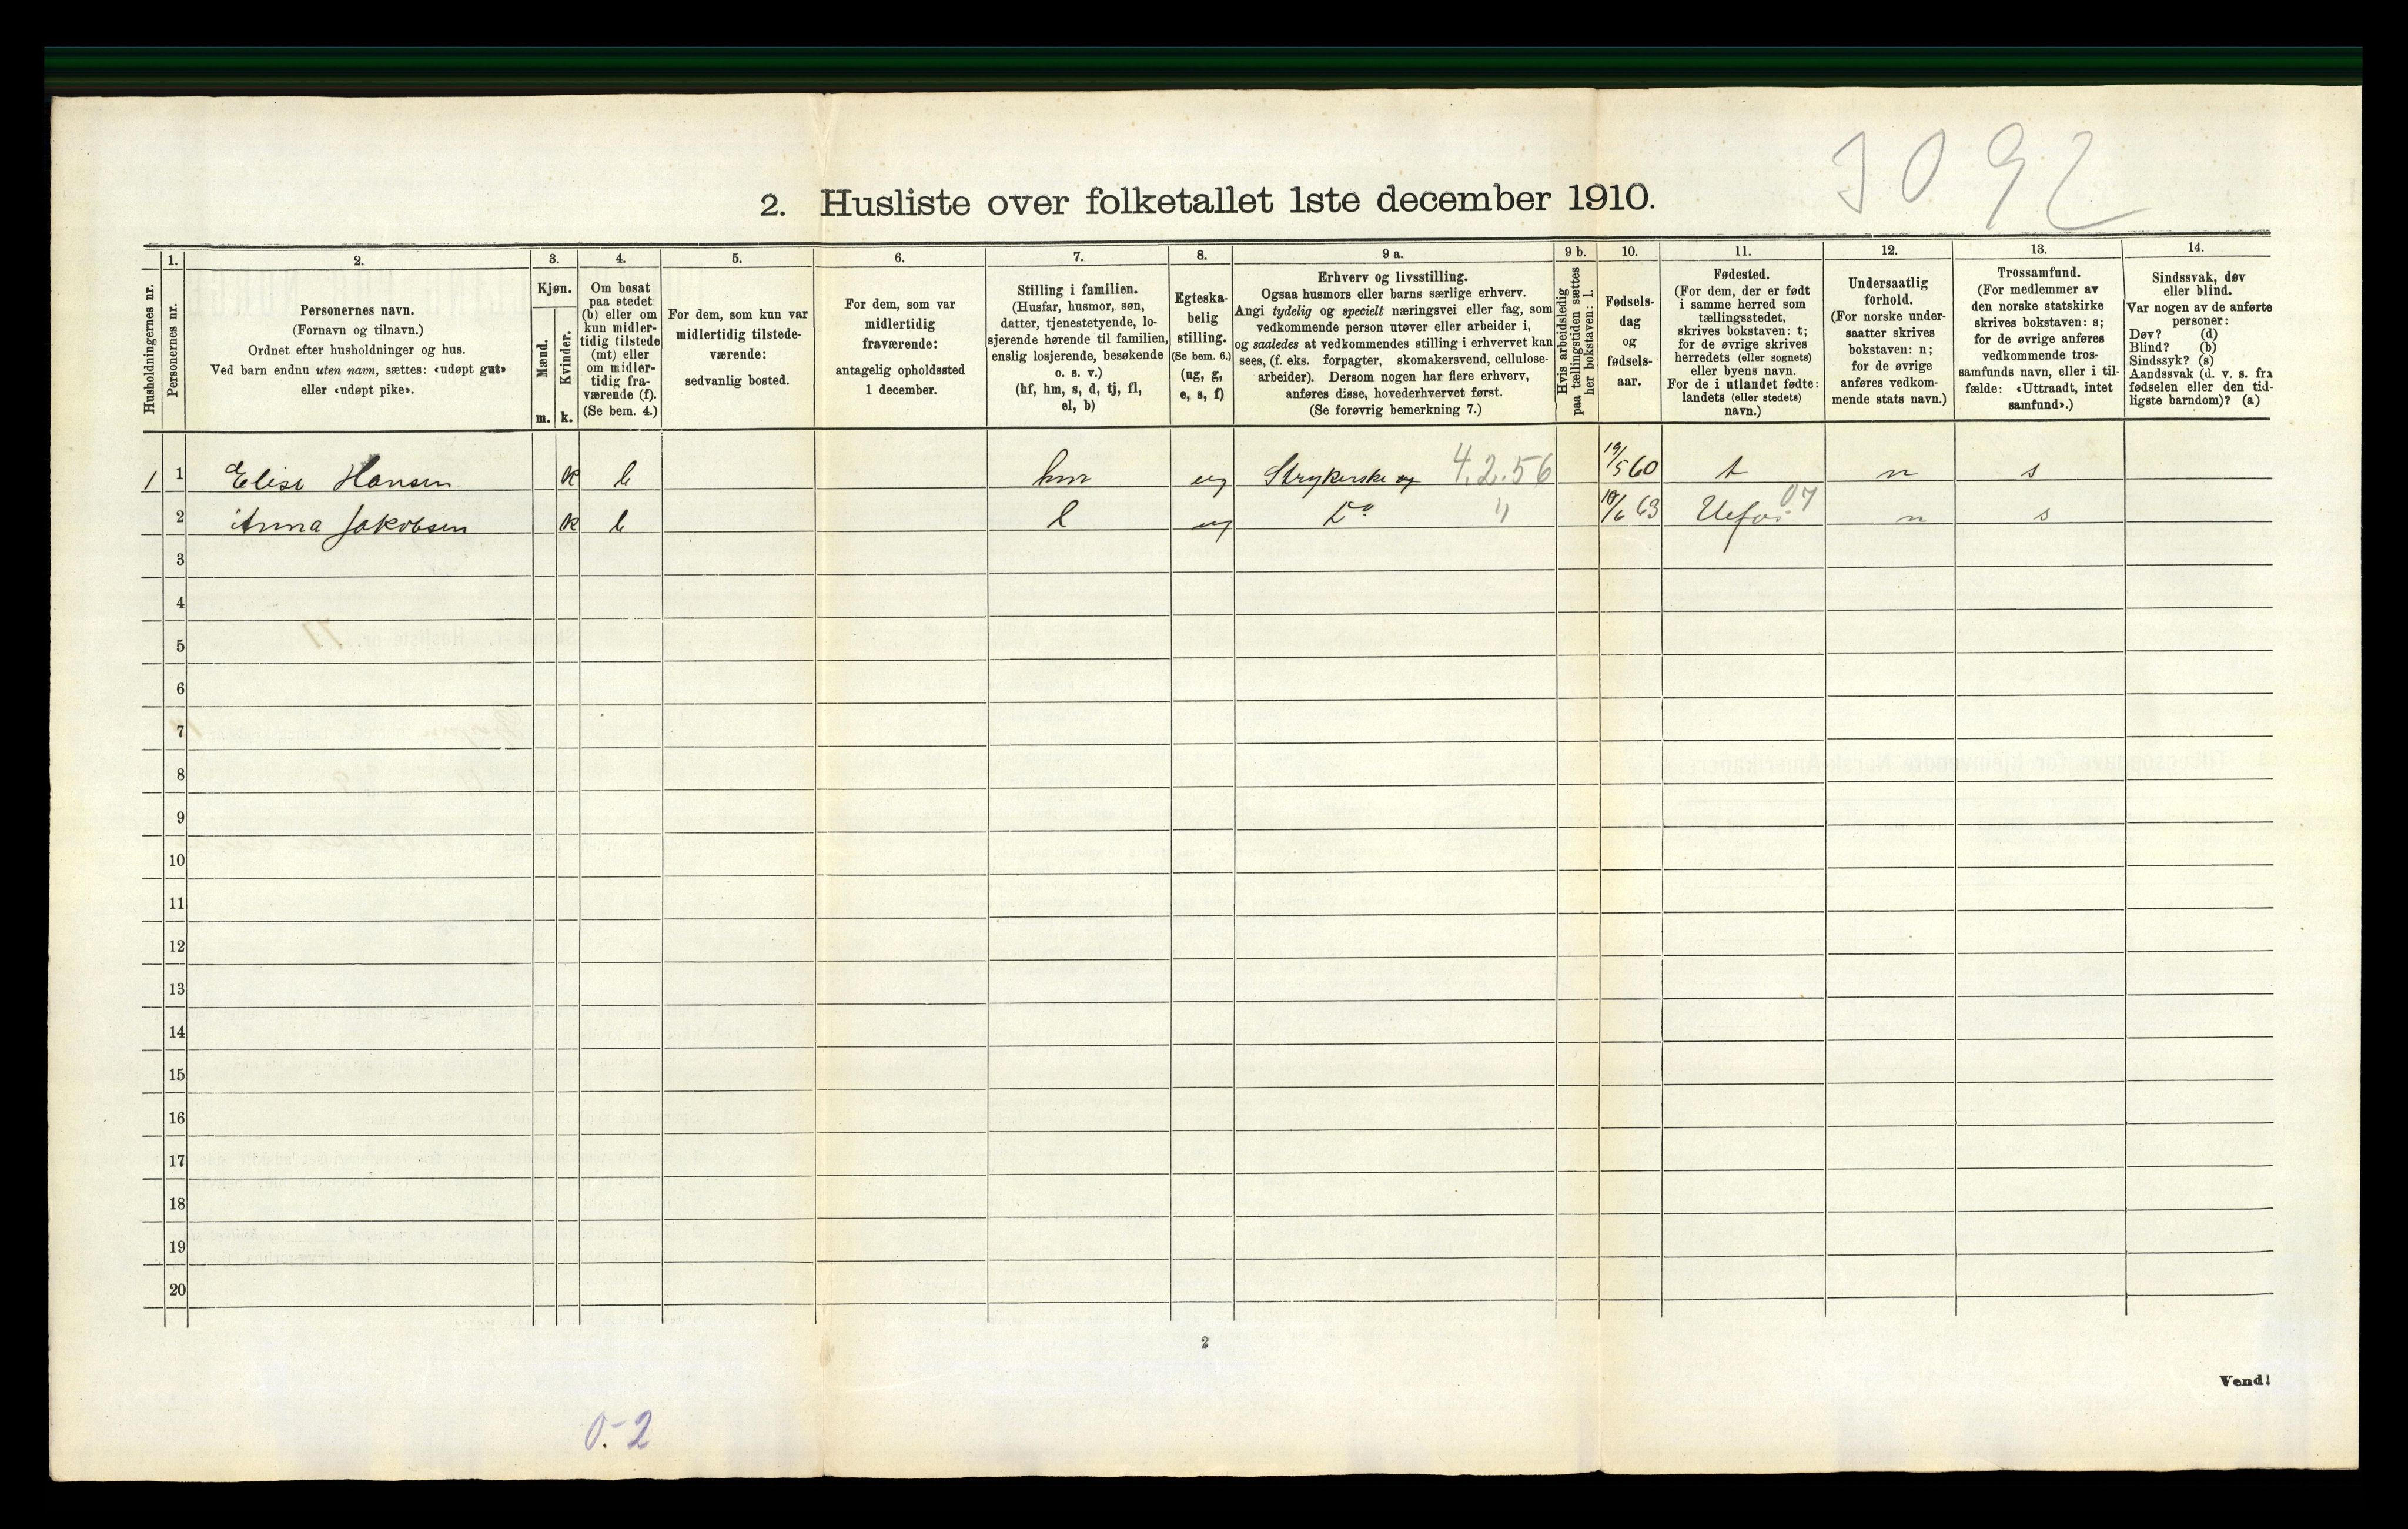 3092
2. Husliste over folketallet 1ste december 1910.
Husholdningernes nr.
1.
Personernes nr.
2.
Personernes navn.
(Fornavn og tilnavn.)
Ordnet efter husholdninger og hus.
Ved barn endnu uten navn, sættes: «udøpt gut»
eller «udøpt pike».
3.
Kjøn.
Mænd.
Kvinder.
m. k.
4.
Om bosat
paa stedet
(b) eller om
kun midler-
tidig tilstede
(mt) eller
om midler-
tidig fra-
værende (f).
(Se bem. 4.)
5.
For dem, som kun var
midlertidig tilstede-
værende:
sedvanlig bosted.
6.
For dem, som var
midlertidig
fraværende:
antagelig opholdssted
1 december.
7.
Stilling i familien.
(Husfar, husmor, søn,
datter, tjenestetyende, lo-
sjerende hørende til familien,
enslig losjerende, besøkende
o. s. v.)
(hf, hm, s, d, tj, fl,
el, b)
8.
Egteska-
belig
stilling.
(Se bem. 6.)
(ug, g,
e, s, f)
9 a.
Erhverv og livsstilling.
Ogsaa husmors eller barns særlige erhverv.
Angi tydelig og specielt næringsvei eller fag, som
vedkommende person utøver eller arbeider i,
og saaledes at vedkommendes stilling i erhvervet kan
sees, (f. eks. forpagter, skomakersvend, cellulose-
arbeider). Dersom nogen har flere erhverv,
anføres disse, hovederhvervet først.
(Se forøvrig bemerkning 7.)
9 b.
Hvis arbeidsledig
paa tællingstiden sættes
her bokstaven: l.
10.
Fødsels-
dag
og
fødsels-
aar.
11.
Fødested.
(For dem, der er født
i samme herred som
tællingsstedet,
skrives bokstaven: t;
for de øvrige skrives
herredets (eller sognets)
eller byens navn.
For de i utlandet fødte:
landets (eller stedets)
navn.)
12.
Undersaatlig
forhold.
(For norske under-
saatter skrives
bokstaven: n;
for de øvrige
anføres vedkom-
mende stats navn.)
13.
Trossamfund.
(For medlemmer av
den norske statskirke
skrives bokstaven: s;
for de øvrige anføres
vedkommende tros-
samfunds navn, eller i til-
fælde: «Uttraadt, intet
samfund».)
14.
Sindssvak, døv
eller blind.
Var nogen av de anførte
personer:
Døv? (d)
Blind? (b)
Sindssyk? (s)
Aandssvak (d. v. s. fra
fødselen eller den tid-
ligste barndom)? (a)
1 1 Elise Hansen k b hm ug Strykerske 4.2.56 19/5 60 t n s
2 Anna Jakobsen k b l ug Do " 63 07 n s
3
4
5
6
7
8
9
10
11
12
13
14
15
16
17
18
19
20
2
Vend!
0-2